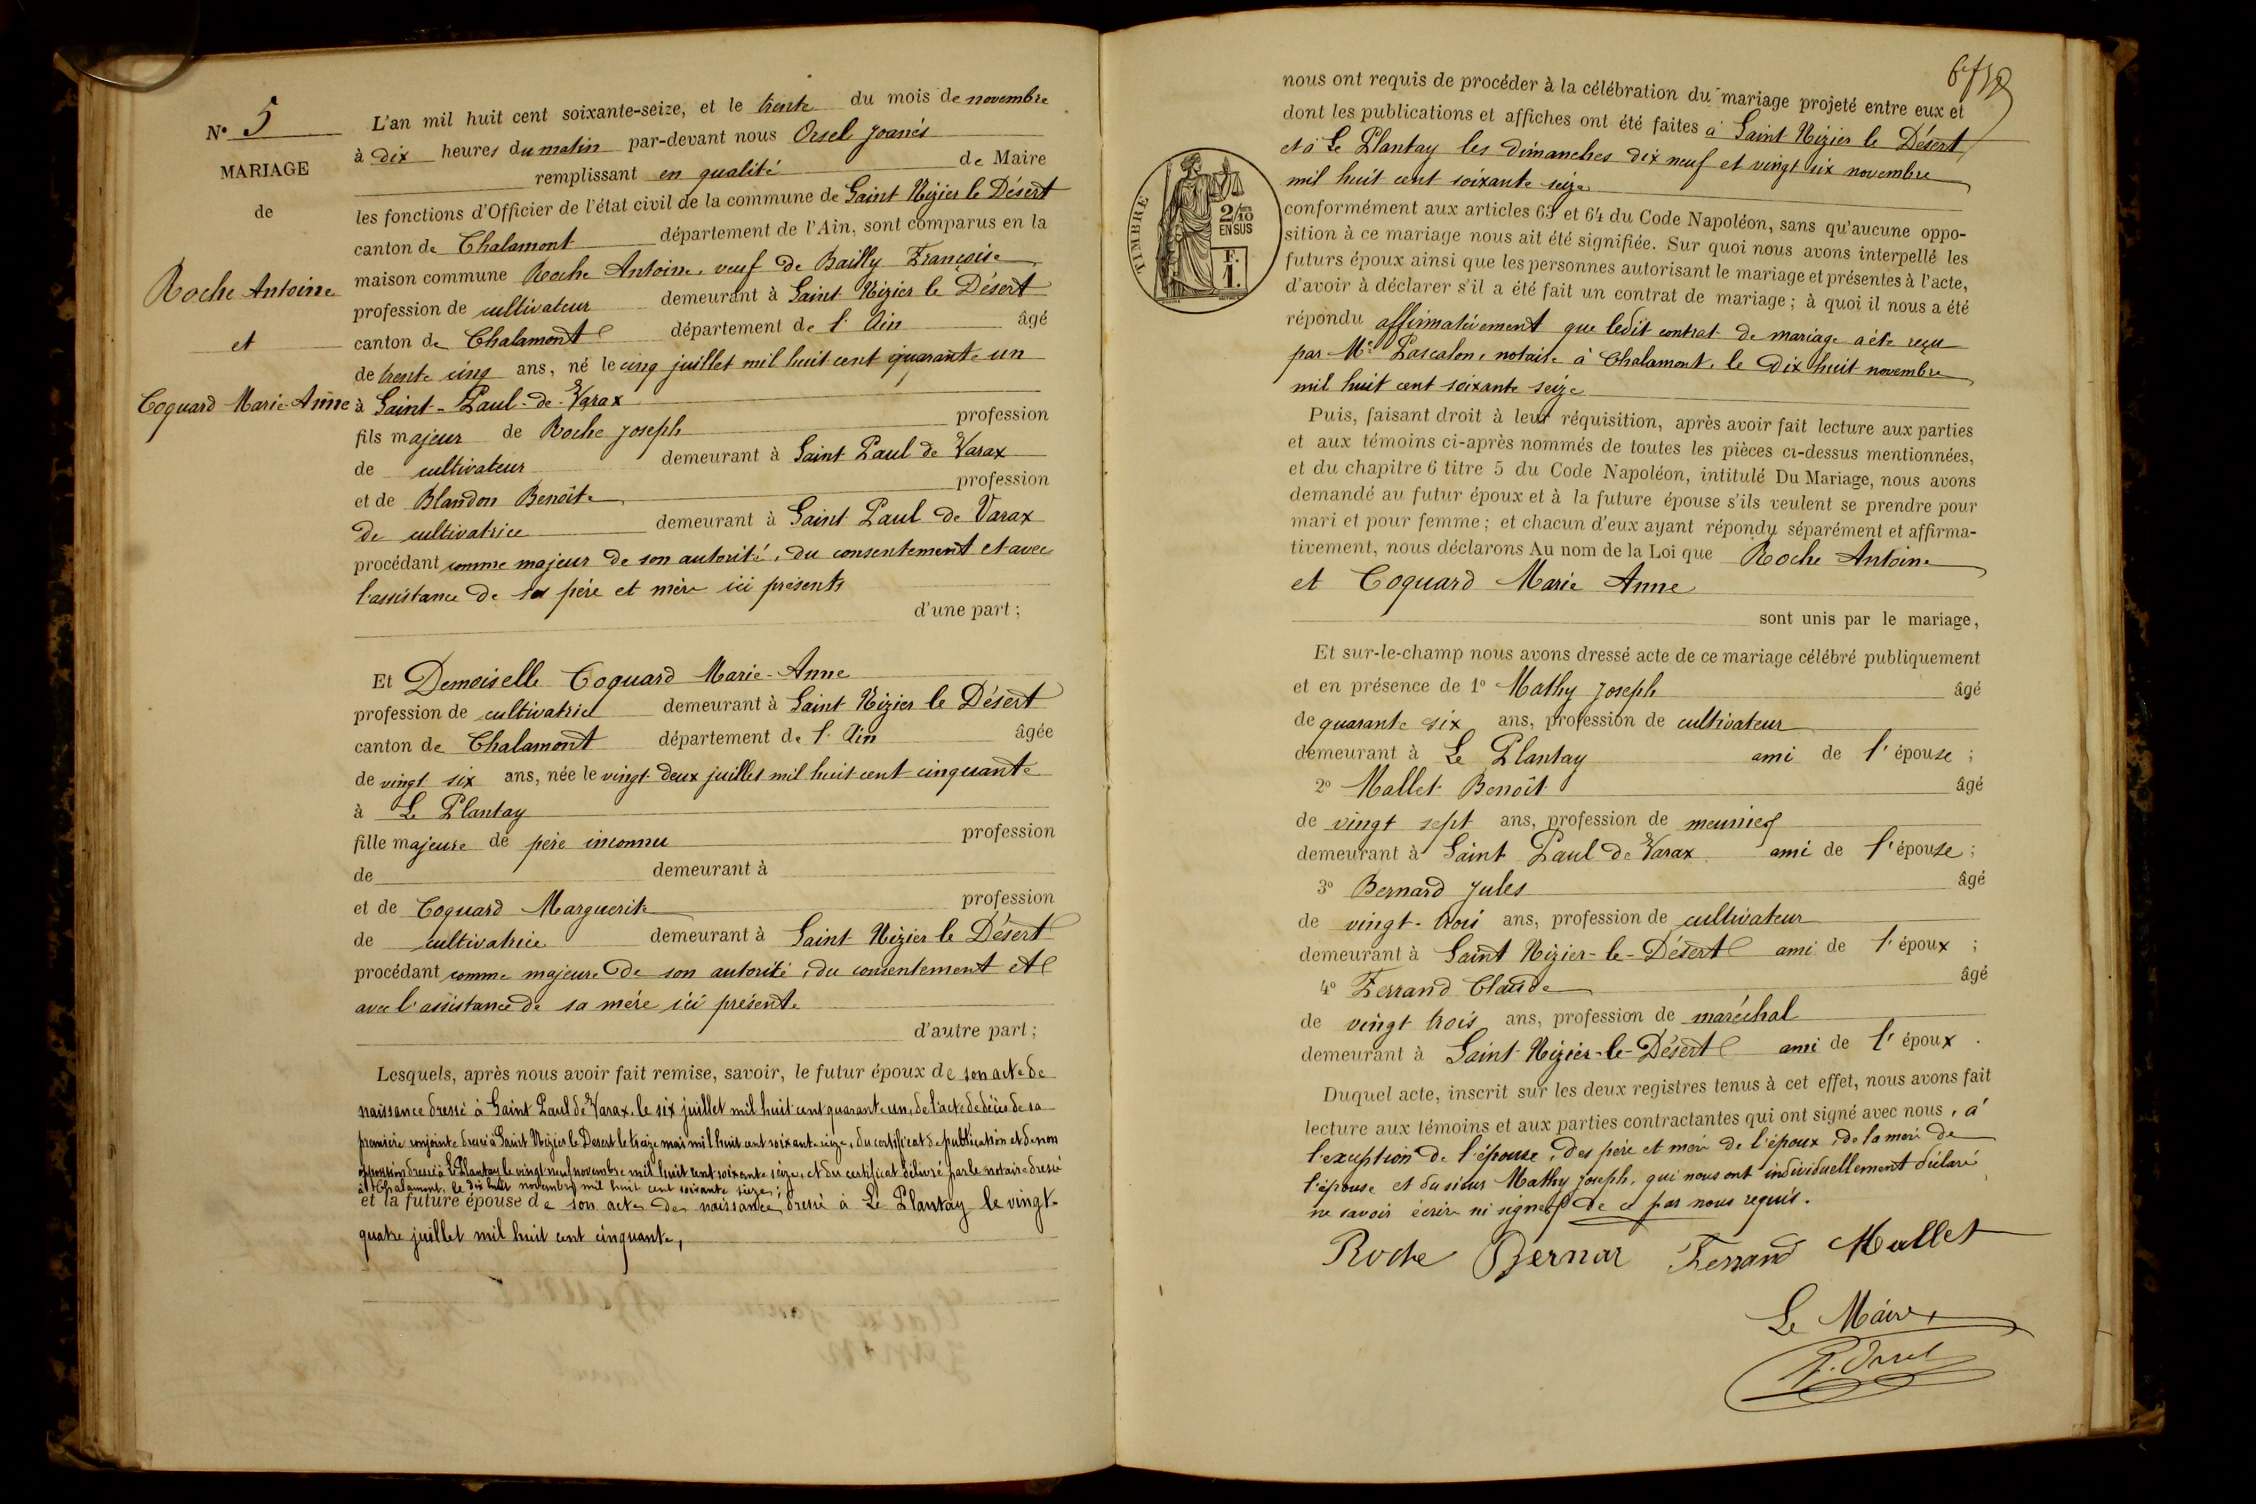 N° 5
MARIAGE
de
Roche Antoine
et
Coquard Marie-Anne
L'an mil huit cent soixante-seize, et le trente du mois de novembre
à dix heures du matin par-devant nous Orsel Joanès
remplissant en qualité de Maire
les fonctions d'Officier de l'état civil de la commune de Saint Nizier le Désert
canton de Chalamont département de l'Ain, sont comparus en la
maison commune Roche Antoine, veuf de Bailly Françoise
profession de cultivateur demeurant à Saint Nizier le Désert
canton de Chalamont département de l'Ain âgé
de trente cinq ans, né le cinq juillet mil huit cent quarante un
à Saint-Paul-de-Varax
fils majeur de Roche Joseph profession
de cultivateur demeurant à Saint Paul de Varax
et de Blandon Benoîte profession
de cultivatrice demeurant à Saint Paul de Varax
procédant comme majeur de son autorité, du consentement et avec
l'assistance de ses père et mère ici présents
d'une part ;
Et Demoiselle Coquard Marie-Anne
profession de cultivatrice demeurant à Saint Nizier le Désert
canton de Chalamont département de l'Ain âgée
de vingt six ans, née le vingt-deux juillet mil huit cent cinquante
à Le Plantay
fille majeure de père inconnu profession
de demeurant à
et de Coquard Marguerite profession
de cultivatrice demeurant à Saint Nizier le Désert
procédant comme majeure de son autorité, du consentement et
avec l'assistance de sa mère ici présente
d'autre part ;
Lesquels, après nous avoir fait remise, savoir, le futur époux de son acte de
naissance dressé à Saint Paul de Varax, le six juillet mil huit cent quarante un, de l'acte de décès de sa
première conjointe dressé à Saint Nizier le Désert le treize mai mil huit cent soixante seize, du certificat de publication et de non
opposition dressé à Le Plantay le vingt neuf novembre mil huit cent soixante seize, et du certificat délivré par le notaire dressé
à Chalamont, le dix huit novembre mil huit cent soixante seize ;
et la future épouse de son acte de naissance dressé à Le Plantay le vingt-
quatre juillet mil huit cent cinquante,
nous ont requis de procéder à la célébration du mariage projeté entre eux et
dont les publications et affiches ont été faites à Saint Nizier le Désert
et à Le Plantay les dimanches dix neuf et vingt six novembre
mil huit cent soixante seize
TIMBRE
2/10
EN SUS
F.
1.
conformément aux articles 63 et 64 du Code Napoléon, sans qu'aucune oppo-
sition à ce mariage nous ait été signifiée. Sur quoi nous avons interpellé les
futurs époux ainsi que les personnes autorisant le mariage et présentes à l'acte,
d'avoir à déclarer s'il a été fait un contrat de mariage ; à quoi il nous a été
répondu affirmativement que ledit contrat de mariage a été reçu
par Me Pascalon, notaire à Chalamont, le dix huit novembre
mil huit cent soixante seize
Puis, faisant droit à leur réquisition, après avoir fait lecture aux parties
et aux témoins ci-après nommés de toutes les pièces ci-dessus mentionnées,
et du chapitre 6 titre 5 du Code Napoléon, intitulé Du Mariage, nous avons
demandé au futur époux et à la future épouse s'ils veulent se prendre pour
mari et pour femme ; et chacun d'eux ayant répondu séparément et affirma-
tivement, nous déclarons Au nom de la Loi que Roche Antoine
et Coquard Marie Anne
sont unis par le mariage,
Et sur-le-champ nous avons dressé acte de ce mariage célébré publiquement
et en présence de 1° Mathy Joseph âgé
de quarante six ans, profession de cultivateur
demeurant à Le Plantay ami de l'épouse ;
2° Mallet Benoît âgé
de vingt sept ans, profession de meunier
demeurant à Saint Paul de Varax ami de l'épouse ;
3° Bernard Jules âgé
de vingt-trois ans, profession de cultivateur
demeurant à Saint Nizier-le-Désert ami de l'époux ;
4° Ferrand Claude âgé
de vingt trois ans, profession de maréchal
demeurant à Saint-Nizier-le-Désert ami de l'époux .
Duquel acte, inscrit sur les deux registres tenus à cet effet, nous avons fait
lecture aux témoins et aux parties contractantes qui ont signé avec nous, à
l'exception de l'épouse, des père et mère de l'époux, de la mère de
l'épouse et du sieur Mathy Joseph, qui nous ont individuellement déclaré
ne savoir écrire ni signer de ce par nous requis.
Roche Bernar Ferrand Mallet
Le Maire
J. Orsel